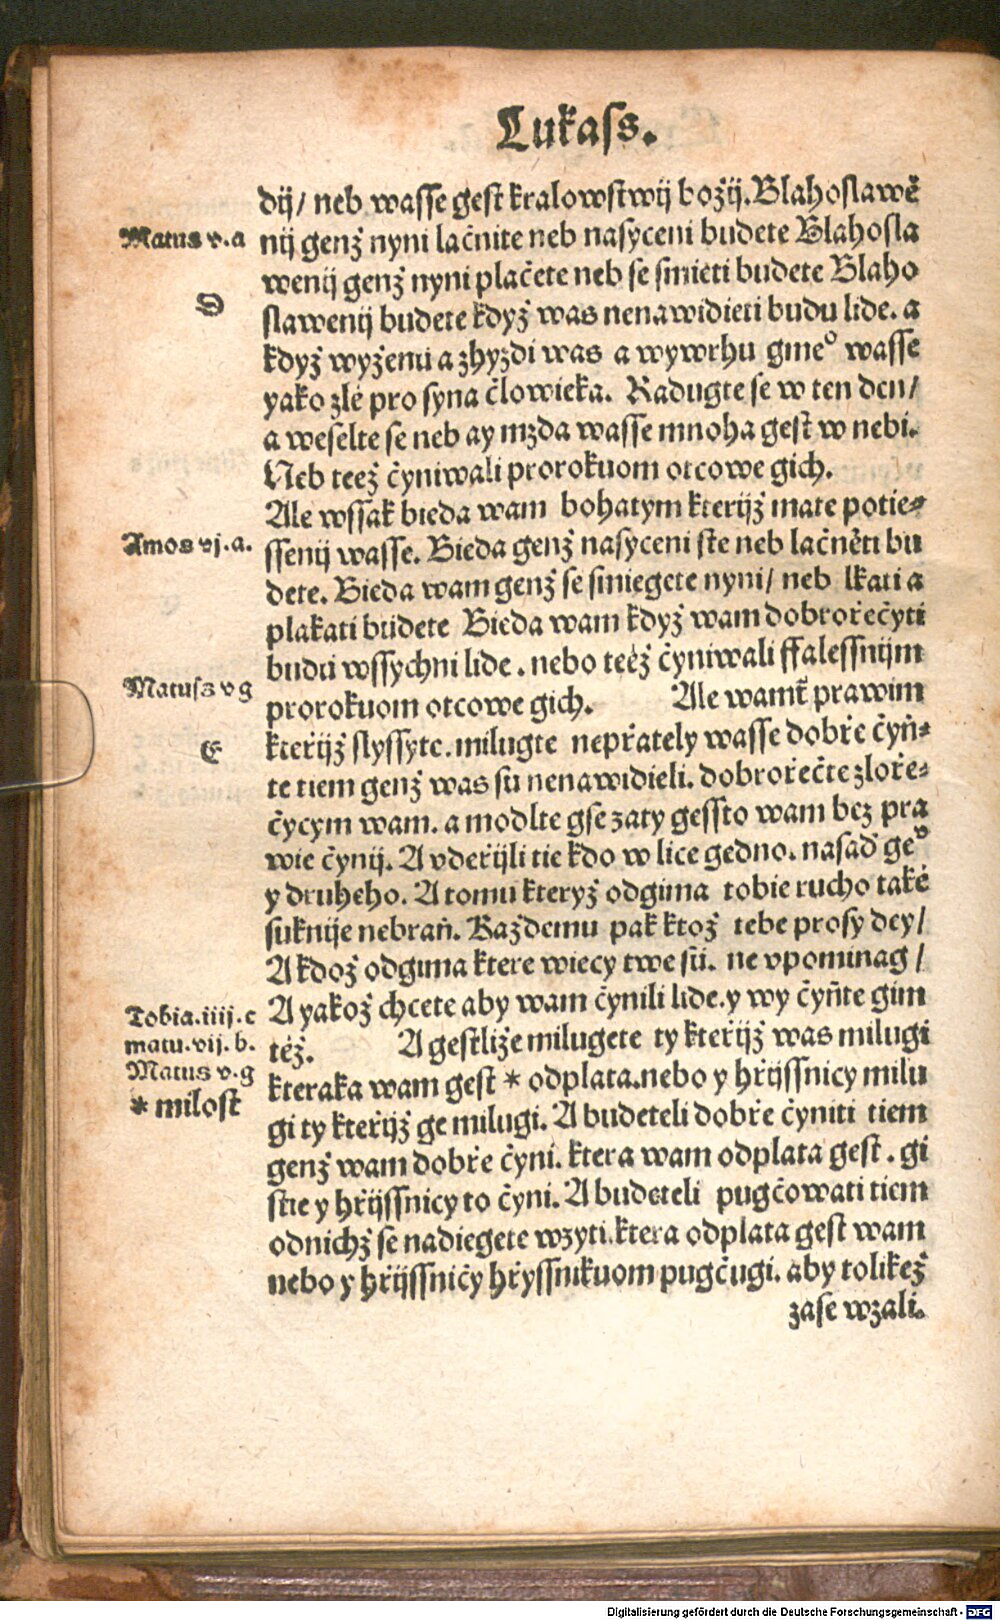 Lukass.
dij/ neb wasse gest kralowstwij božij. Blahoslawē
Matus v.a
nij genž nyni lačnite neb nasyceni budete Blahosla
wenij genž nyni plačete neb se smieti budete Blaho
D
slawenij budete když was nenawidieti budu lide. a
když wyženu a zhyzdi was a wywrhu gmeº wasse
yako zlé pro syna člowieka. Radugte se w ten den/
a weselte se neb ay mzda wasse mnoha gest w nebi.
Neb teež čyniwali prorokuom otcowe gich.
Ale wssak bieda wam bohatym kterijž mate potie-
Amos vj.a.
ssenij wasse. Bieda genž nasyceni ste neb lačněti bu
dete. Bieda wam genž se smiegete nyni/ neb lkati a
plakati budete Bieda wam když wam dobrořečyti
budu wssychni lide. nebo teéž čyniwali ffalessnijm
Matuss v g
prorokuom otcowe gich. Ale wamť prawim
E
kteřijž slyssyte. milugte nepřately wasse dobře čyň-
te tiem genž was su nenawidieli. dobrořečte zloře-
čycym wam. a modlte gse zaty gessto wam bez pra
wie čynij. A vdeřijli tie kdo w lice gedno. nasaď geº
y druheho. A tomu kteryž odgima tobie rucho také
suknije nebraň. Každemu pak ktož tebe prosy dey/
A kdož odgima ktere wiecy twe sú. ne vpominag /
A yakož chcete aby wam čynili lide. y wy čyňte gim
Tobia.iiij.c
matu.vij.b.
též. A gestliže milugete ty kteřijž was milugi
Matus v.g
kteraka wam gest * odplata. nebo y hřijssnicy milu
* milost
gi ty kteřijž ge milugi. A budeteli dobře čyniti tiem
genž wam dobře čyni. ktera wam odplata gest. gi
stie y hřijssnicy to čyni. A budeteli pugčowati tiem
odnichž se nadiegete wzyti. ktera odplata gest wam
nebo y hřijssničy hřyssnikuom pugčugi. aby tolikež
zase wzali.
Digitalisierung gefördert durch die Deutsche Forschungsgemeinschaft - DFG